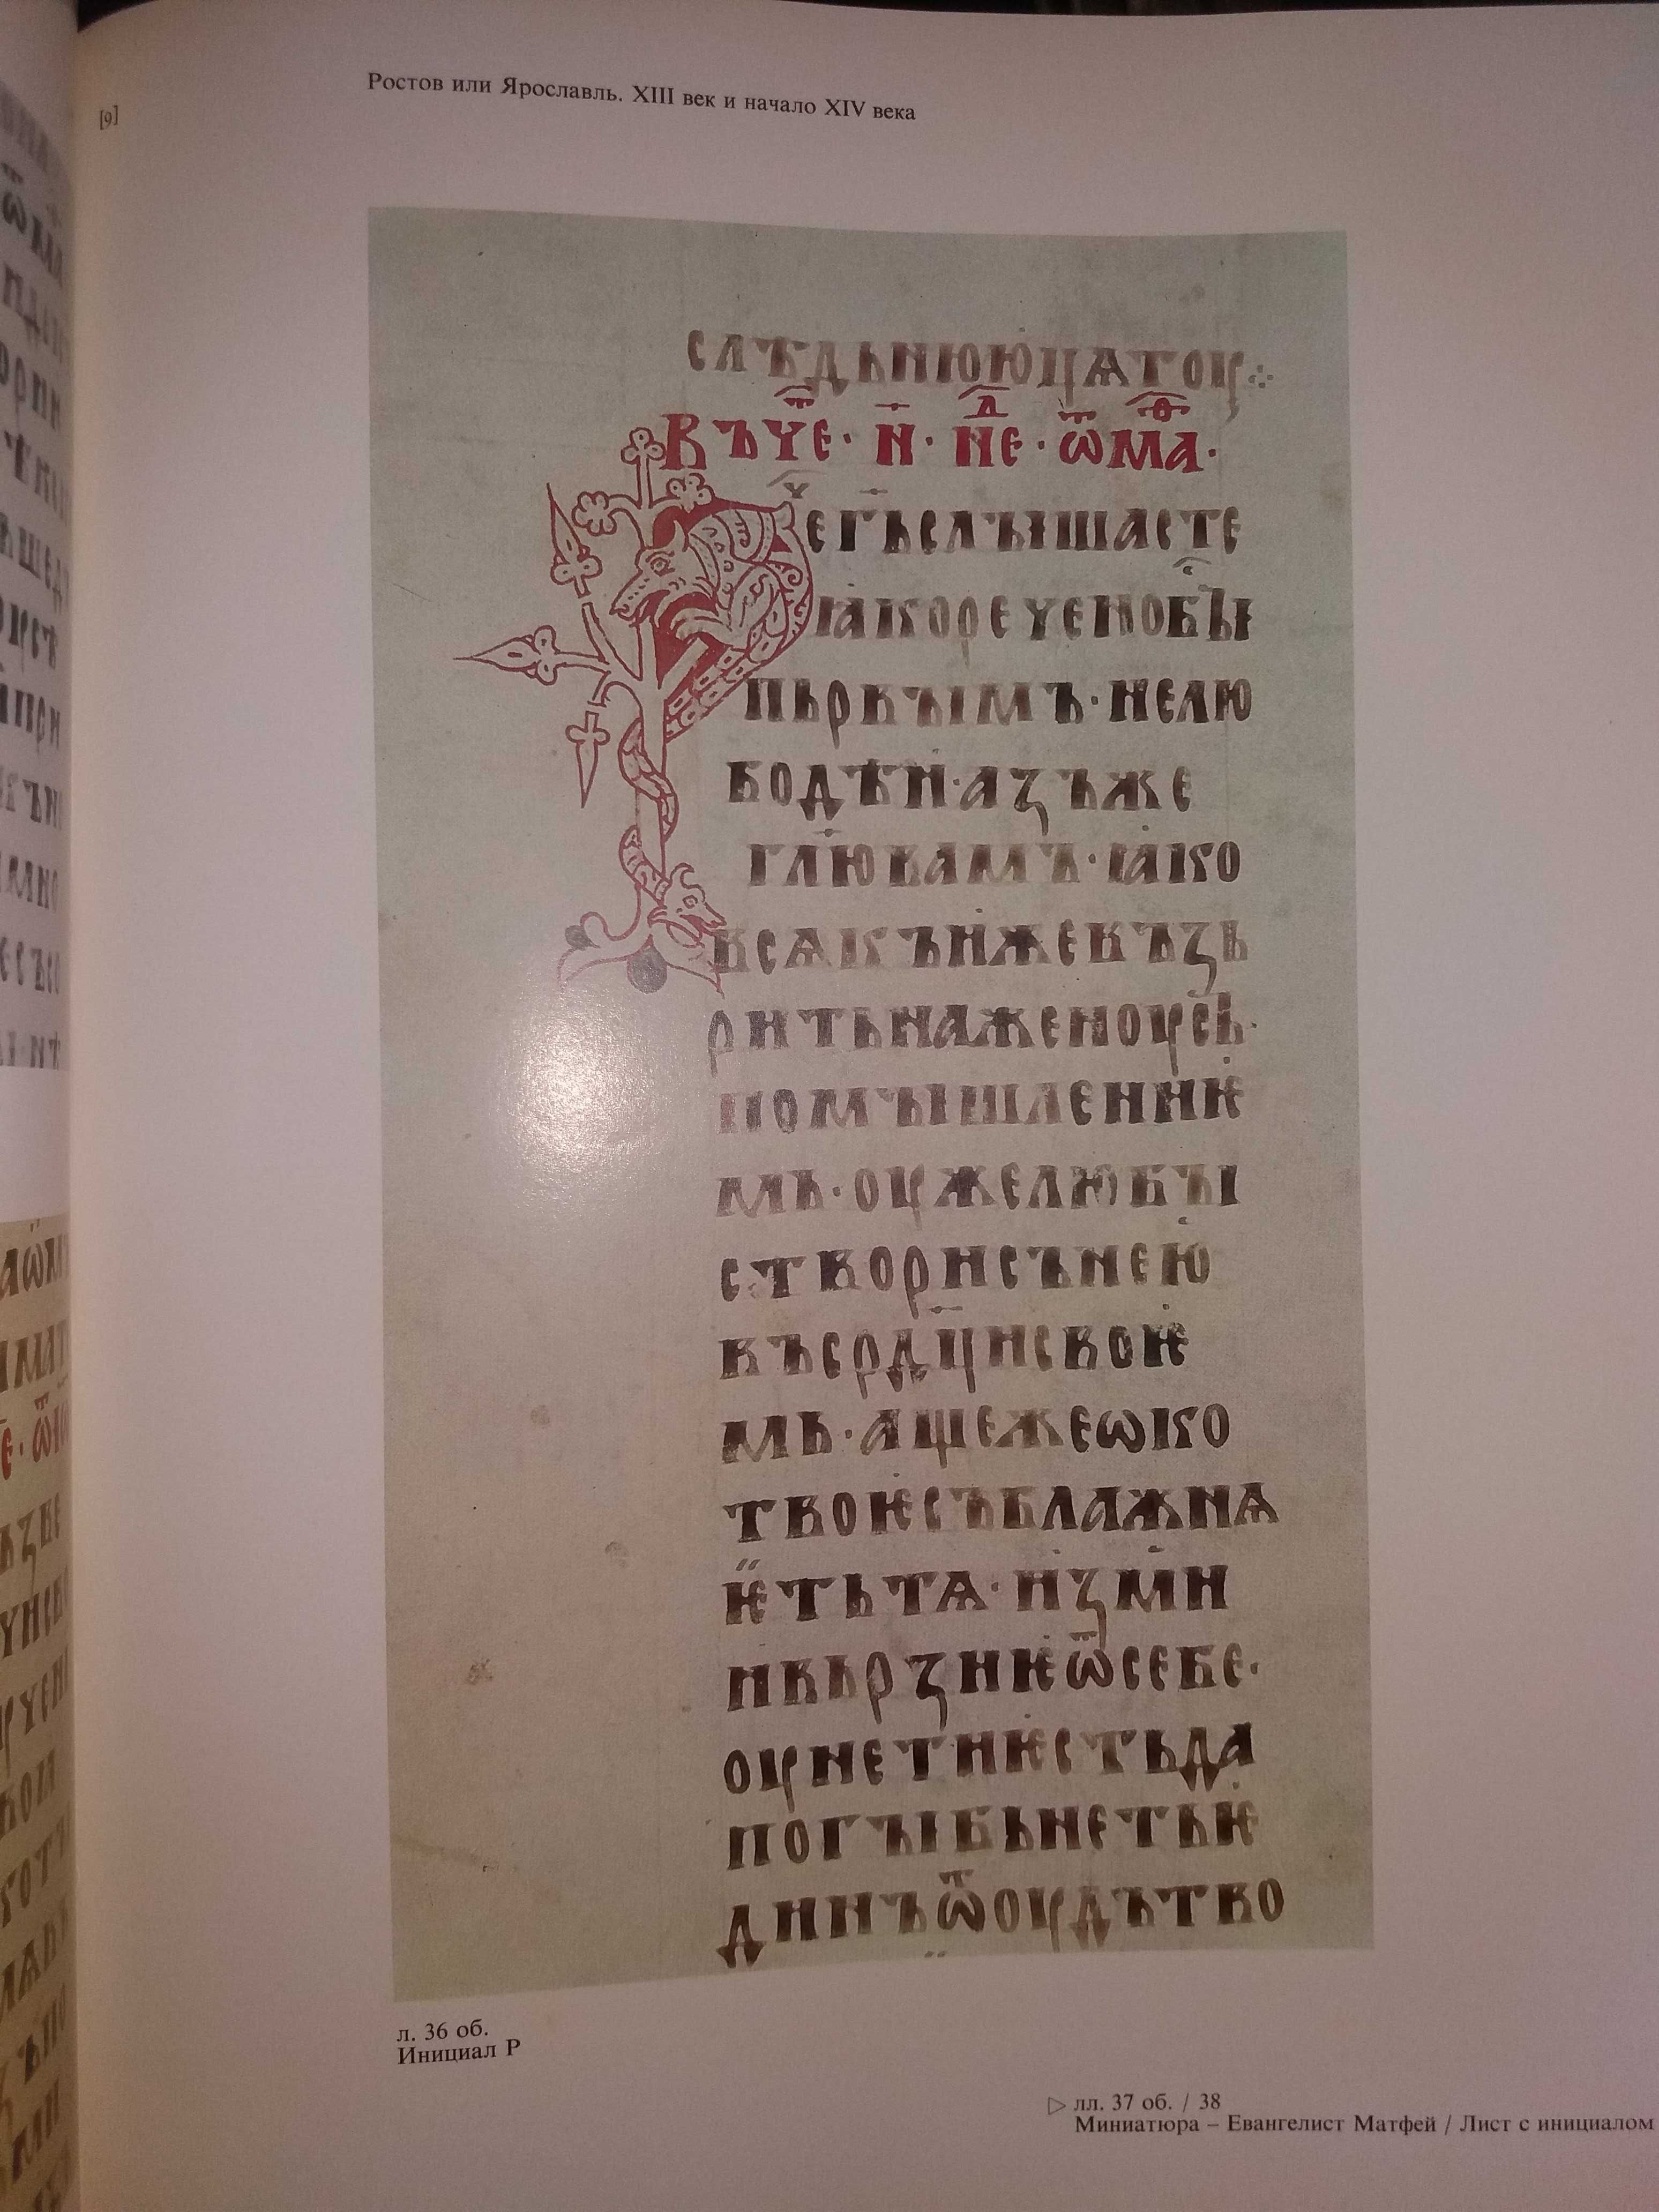 Ростов или Ярославль. XIII век и начало XIV века
[9]
слѣдьнююцатоу⁘
Въчⷮе · н҃ · нⷣе · ѿмаⷴ ·
Рⷱе г҃ьслꙑшасте
ꙗкореченобꙑ
пьрвꙑмъ · нелю
бодѣи · азъже
гл҃ювамъ · ꙗко
всѧкъижевъзь
ритьнаженоусъ ·
помꙑшлениѥ
мь · оужелюбꙑ
створисънею
въсрдц҃исвоѥ
мь · ащежеѡко
твоѥсъблажнѧ
ѥтьтѧ · изми
ивьрзиѥѿсебе ·
оунетиѥстьда
погꙑбьнетьѥ
динъѿоудътво
л. 36 об.
Инициал Р
▷ лл. 37 об. / 38
Миниатюра – Евангелист Матфей / Лист с инициалом